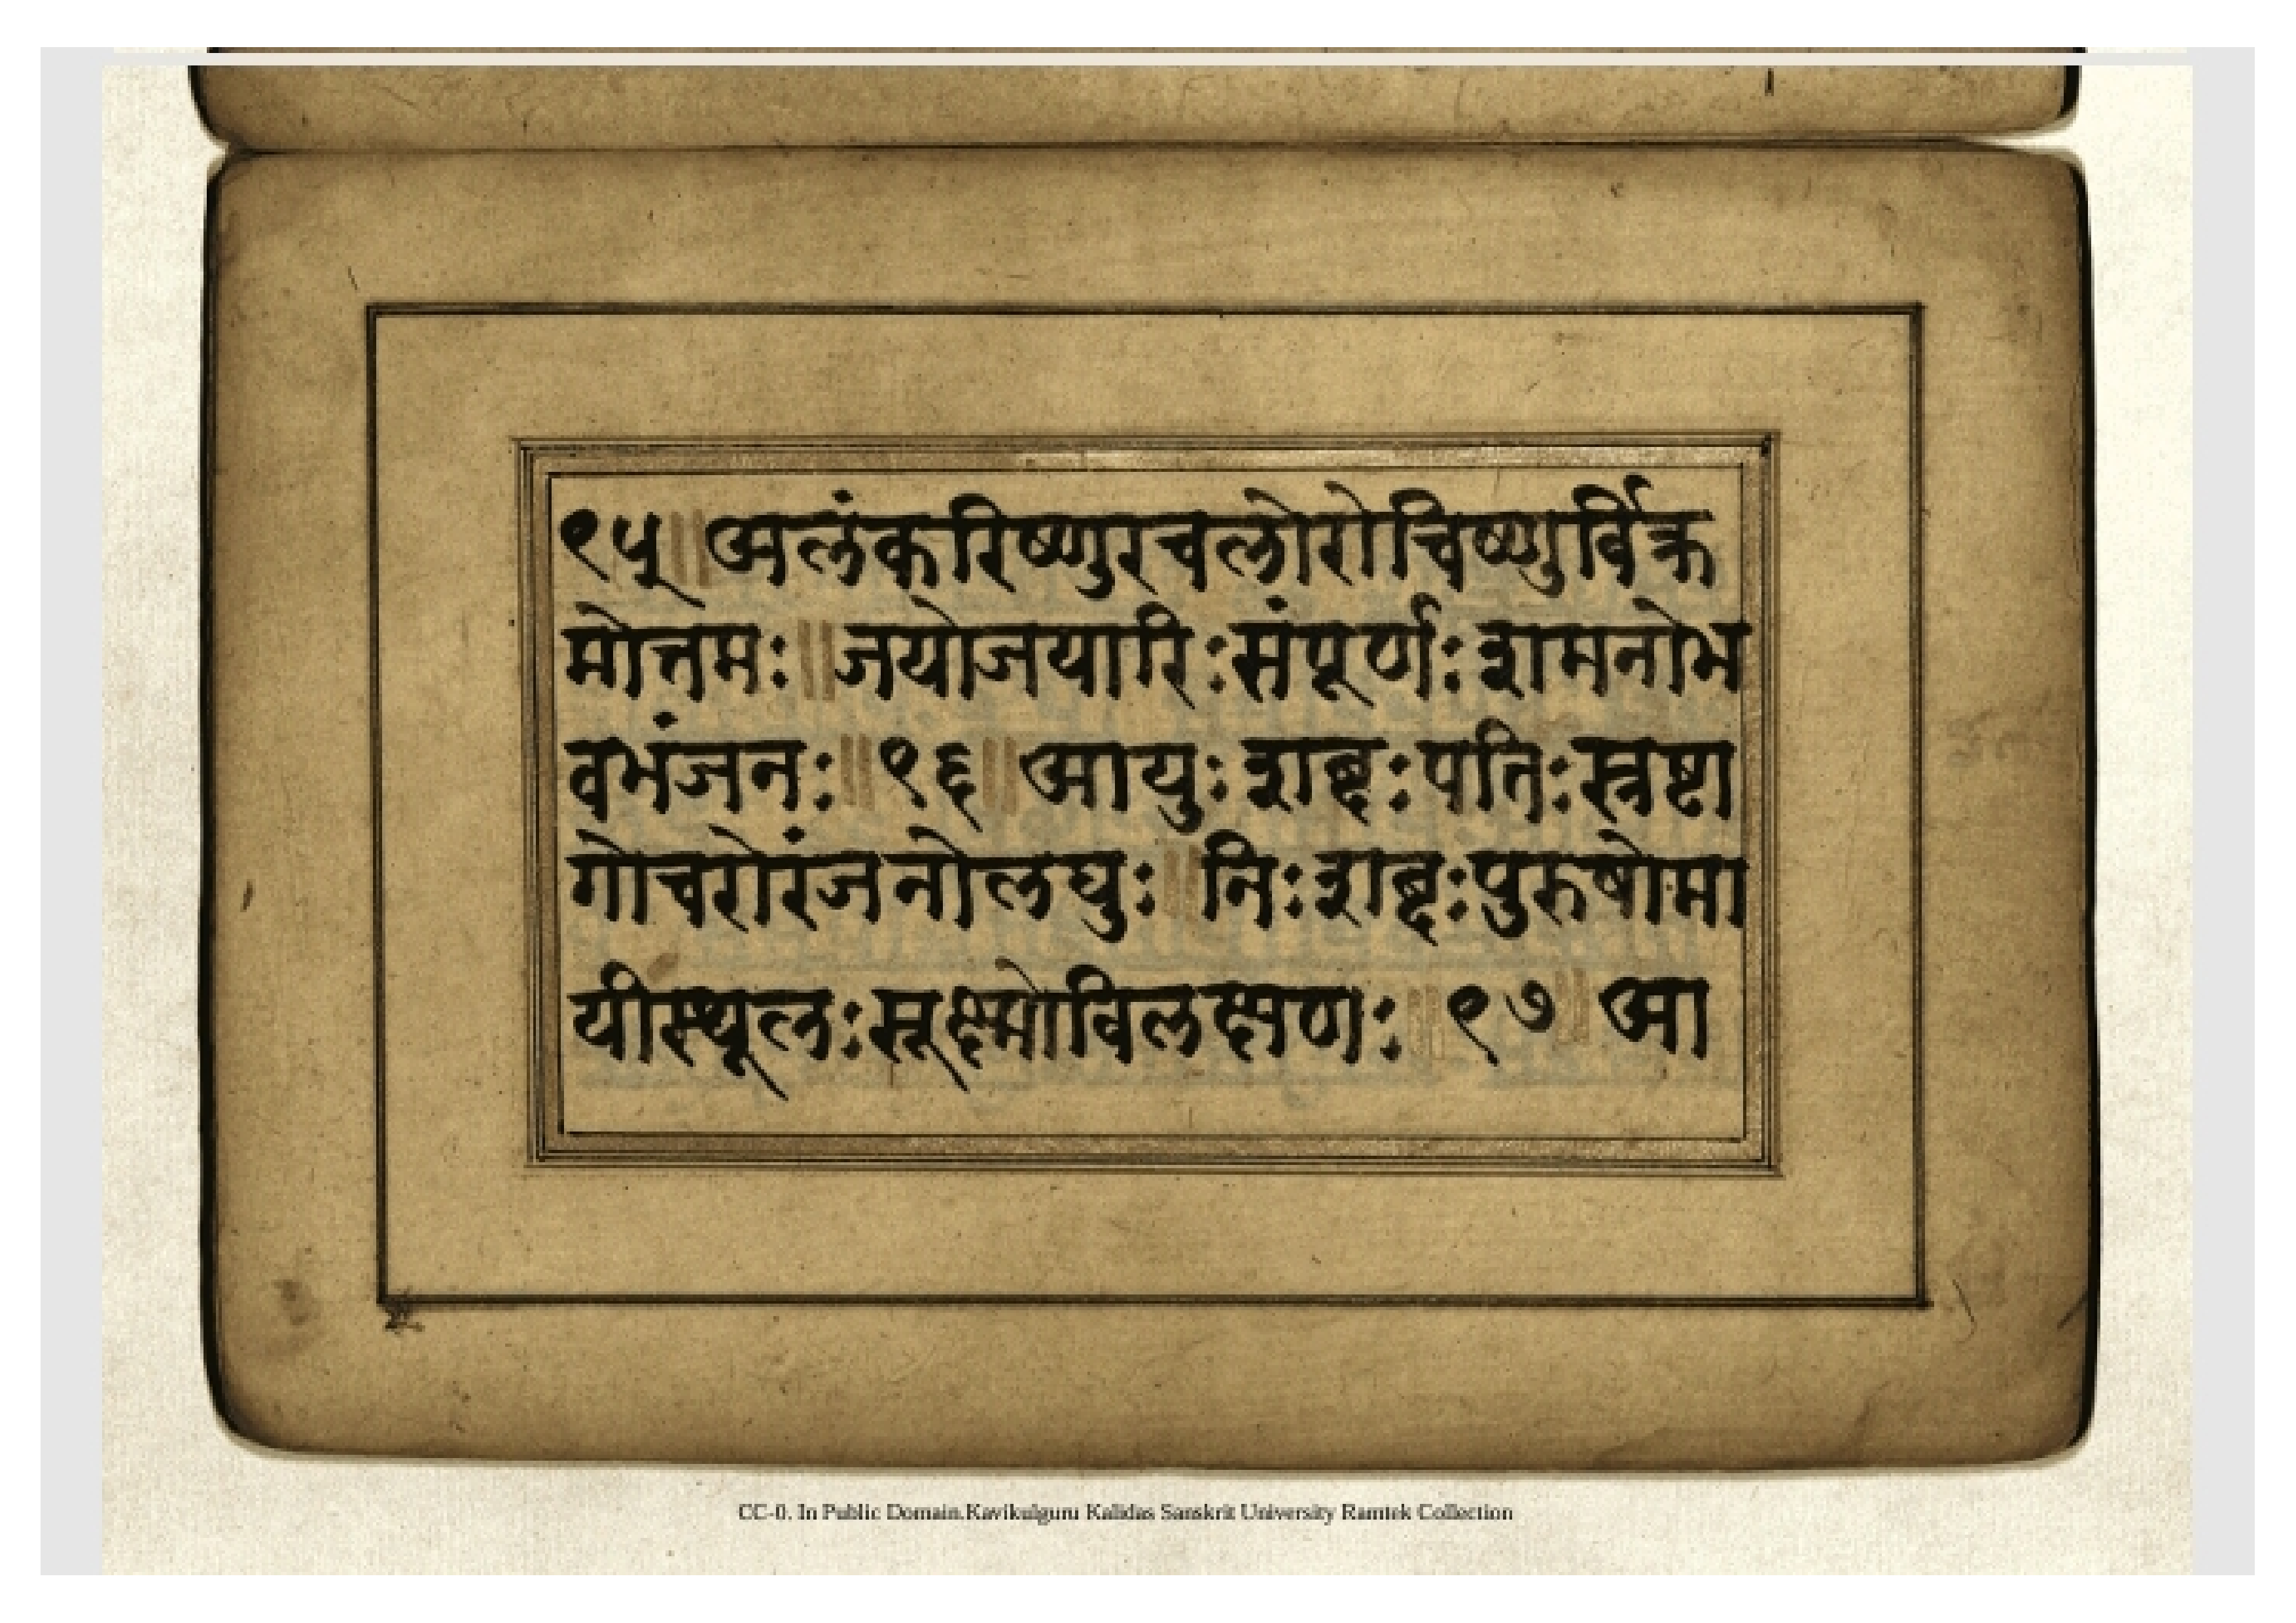 ९५॥अलंकरिष्णुरचलोरोचिष्णुर्विक्र
मोत्तमः॥जयोजयारिःसंपूर्णःशमनोभ
वभंजनः॥९६॥आयुःशब्दःपतिःस्त्रष्टा
गोचरोरंजनोलघुः॥निःशब्दःपुरुषोमा
यीस्थूलःसूक्ष्मोविलक्षणः॥९७॥आ
CC-0. In Public Domain.Kavikulguru Kalidas Sanskrit University Ramtek Collection